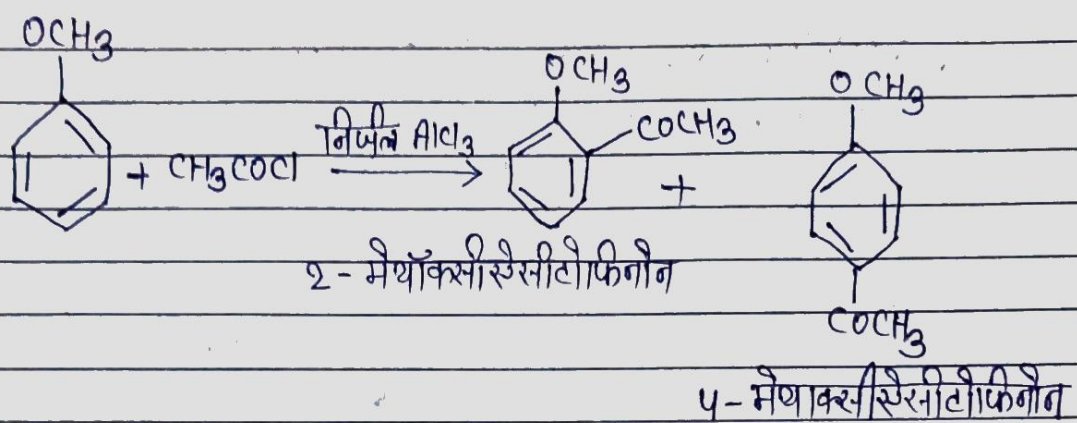 OCH3
+ CH3COCl निर्जल AlCl3
OCH3
COCH3
+
OCH3
COCH3
2-मेथॉक्सीऐसीटोफिनोन
4-मेथाक्सीऐसीटोफिनोन